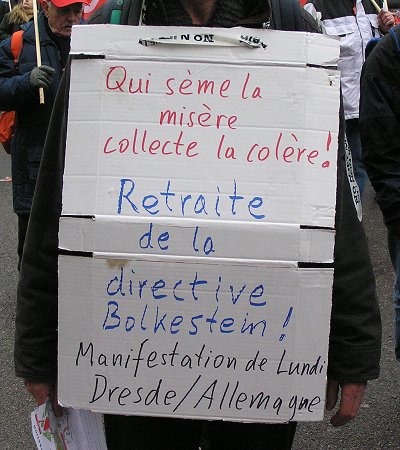 Qui sème la
misère
collecte la colère!
Retraite
de la
directive
Bolkestein!
Manifestation de Lundi
Dresde/Allemagne